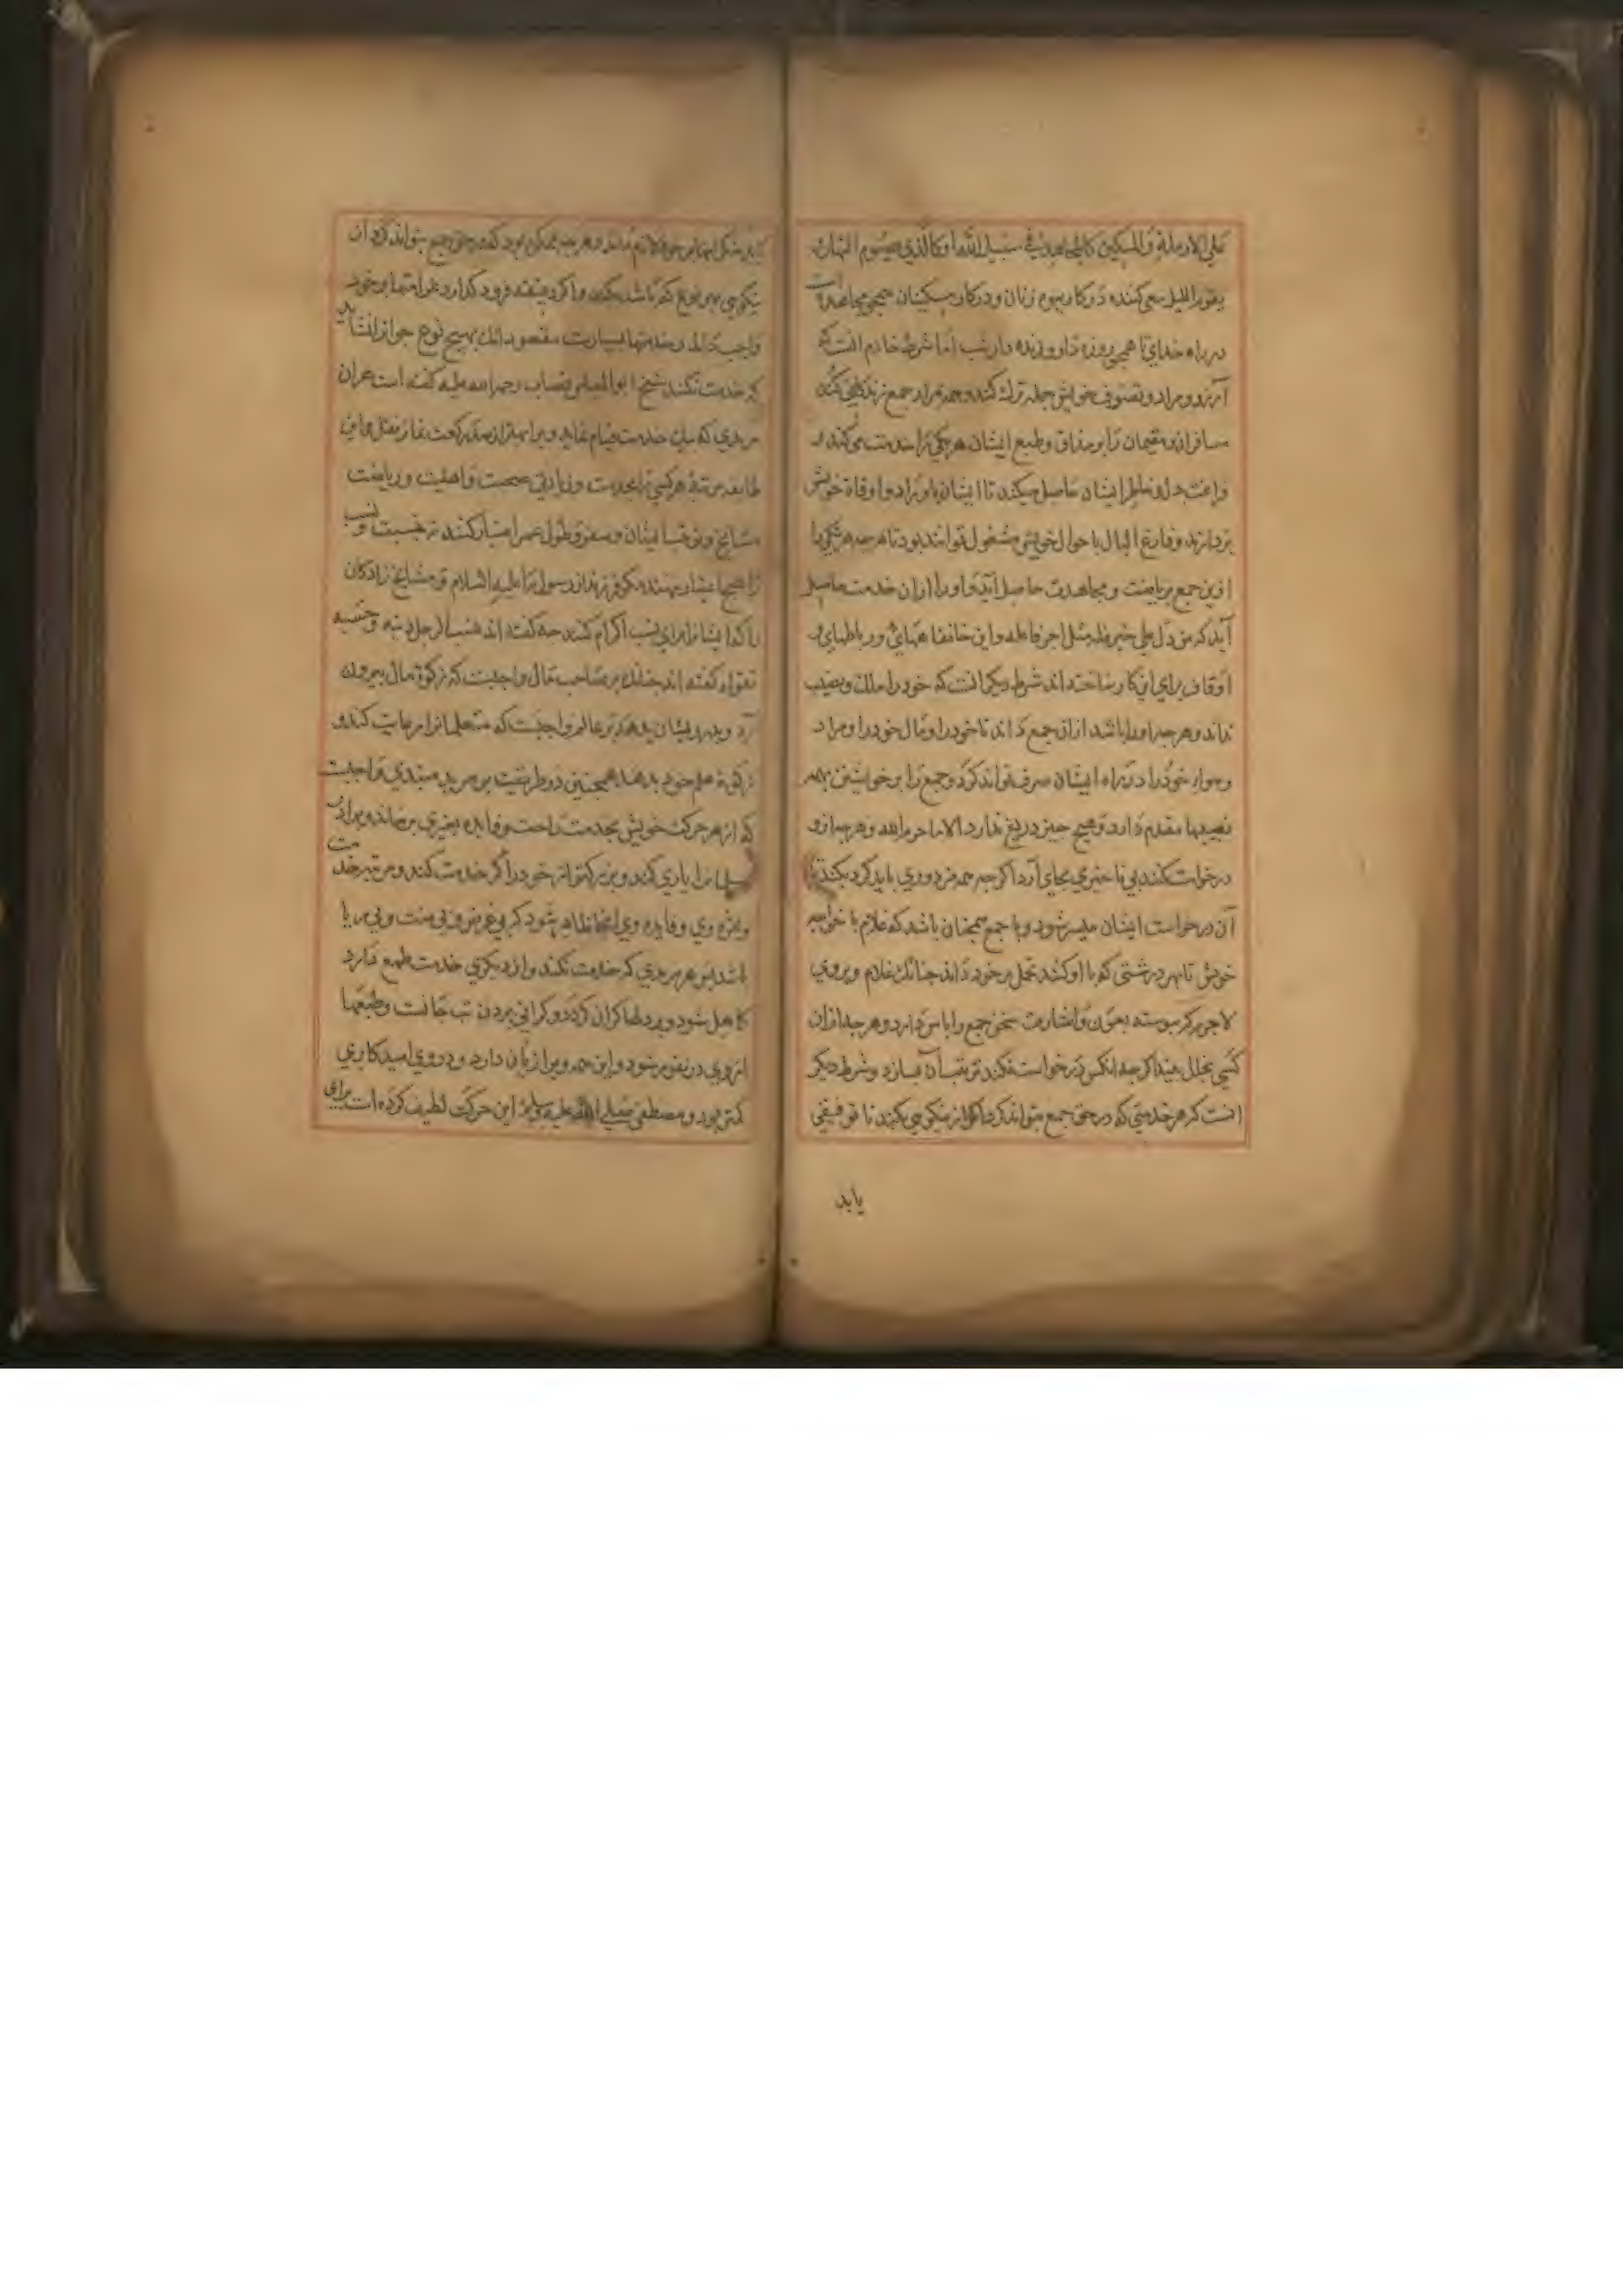 علی الارملة والمسکین کالمجاهد فی سبیل الله او کالذی یصوم النهار و
یقوم اللیل سعی کننده در کار بیوه زنان و در کار مسکینان همچو مجاهد
در راه خدای تا همچو روزه دار و زنده دار شب اما شرط خادم انست که
آرزو و مراد و تصرف خویش جمله ترک کند و همه بمراد جمع زندگانی کند
مسافران و مقیمان را بر مذاق و طبع ایشان هر یکی را خدمت می کند و
فراغت دل و خاطر ایشان حاصل میکند تا ایشان باوراد و اوقات خویش
پردازند و فارغ البال باحوال خویش مشغول توانند بود تا هرچه هر یکی را
ازین جمع بریاضت و مجاهدت حاصل آید او را ازان خدمت حاصل
آید که من دل علی خیر فله مثل اجر فاعله و این خانقاههای و رباطهای و
اوقاف برای این کار ساخته اند شرط دیگر انست که خود را ملک و نصیب
نداند و هرچه او را باشد ازان جمع داند تا خود را و مال خود را و مراد
و هوای خود را در راه ایشان صرف تواند کرد و جمع را بر خویشتن بهمه
نصیبها مقدم دارد و هیچ چیز دریغ ندارد الا ما حرم الله و هرچه ازو
درخواست کنند بی تاخیری بجای آرد اگرچه همه مزدوری باید کرد بکند تا
آن درخواست ایشان میسر شود و با جمع همچنان باشد که غلام با خواجه
خویش تا هر درشتی که با او کنند تحمل بر خود داند چنانک غلام و بروی
لاجرم پیوسته بعون و اشارت سخن جمع را پاس دارد و هرچه ازان
کسی بخلل بیند اگرچه انکس درخواست نکند ترتیب آن بسازد و شرط دیگر
انست که هر خدمتی که در حق جمع بتواند کرد بکند تا توفیقی
یابد
شکر آنها بر خود لازم داند و هرچه ممکن بود که در حق جمع بتواند کرد آن
نیکویی بهر نوع که باشد بکند و اگر دقیقه فرو گذارد غرامتها بر خود
واجب داند و خدمتها بسیارست مقصود انک بهیچ نوع جواز نشاید
که خدمت نکند شیخ ابو العباس قصاب رحمه الله علیه گفته است هران
مریدی که بیک خدمت قیام نماید ویرا بهتر از صد رکعت نماز نفل و این
طایفه مرتبه هر کسی را بخدمت و زیادتی صحبت و اهلیت و ریاضت
مشایخ و ایشان و سفر و طول عمر اعتبار کنند نه نسبت و نسب
را هیچ اعتبار ننهند مگر فرزندان رسول را علیه السلام و مشایخ زادگان
را که ایشانرا برای نسب اکرام کنند چه گفته اند نسب الرجل دینه و حسبه
تقواه گفته اند چنانک بر صاحب مال واجبست که زکوة مال بیرون
آرد و بدرویشان بدهد بر عالم واجبست که متعلمانرا رعایت کند و
زکوة علم خود بدهد همچنین در طریقت بر مرید مبتدی واجبست
که از هر حرکت خویش بخدمت راحت و فایده بغیری برساند و برادر
مسلمانرا یاری کند و بزرگتر از خود را اگر خدمت کند و مرتبه خدمت
و ثمره وی و فایده وی انجا ظاهر شود که بی غرض و بی منت و بی ریا
باشد پس هر مریدی که خدمت نکند و از دیگری خدمت طمع دارد
کاهل شود و بر دلها گران گردد و گرانی بردن تب جانست و طبعها
از وی در نفور شود و این همه ویرا زیان دارد و در وی امید کاری
کمتر بود و مصطفی صلی الله علیه وسلم این حرکت لطیف کرده است برای